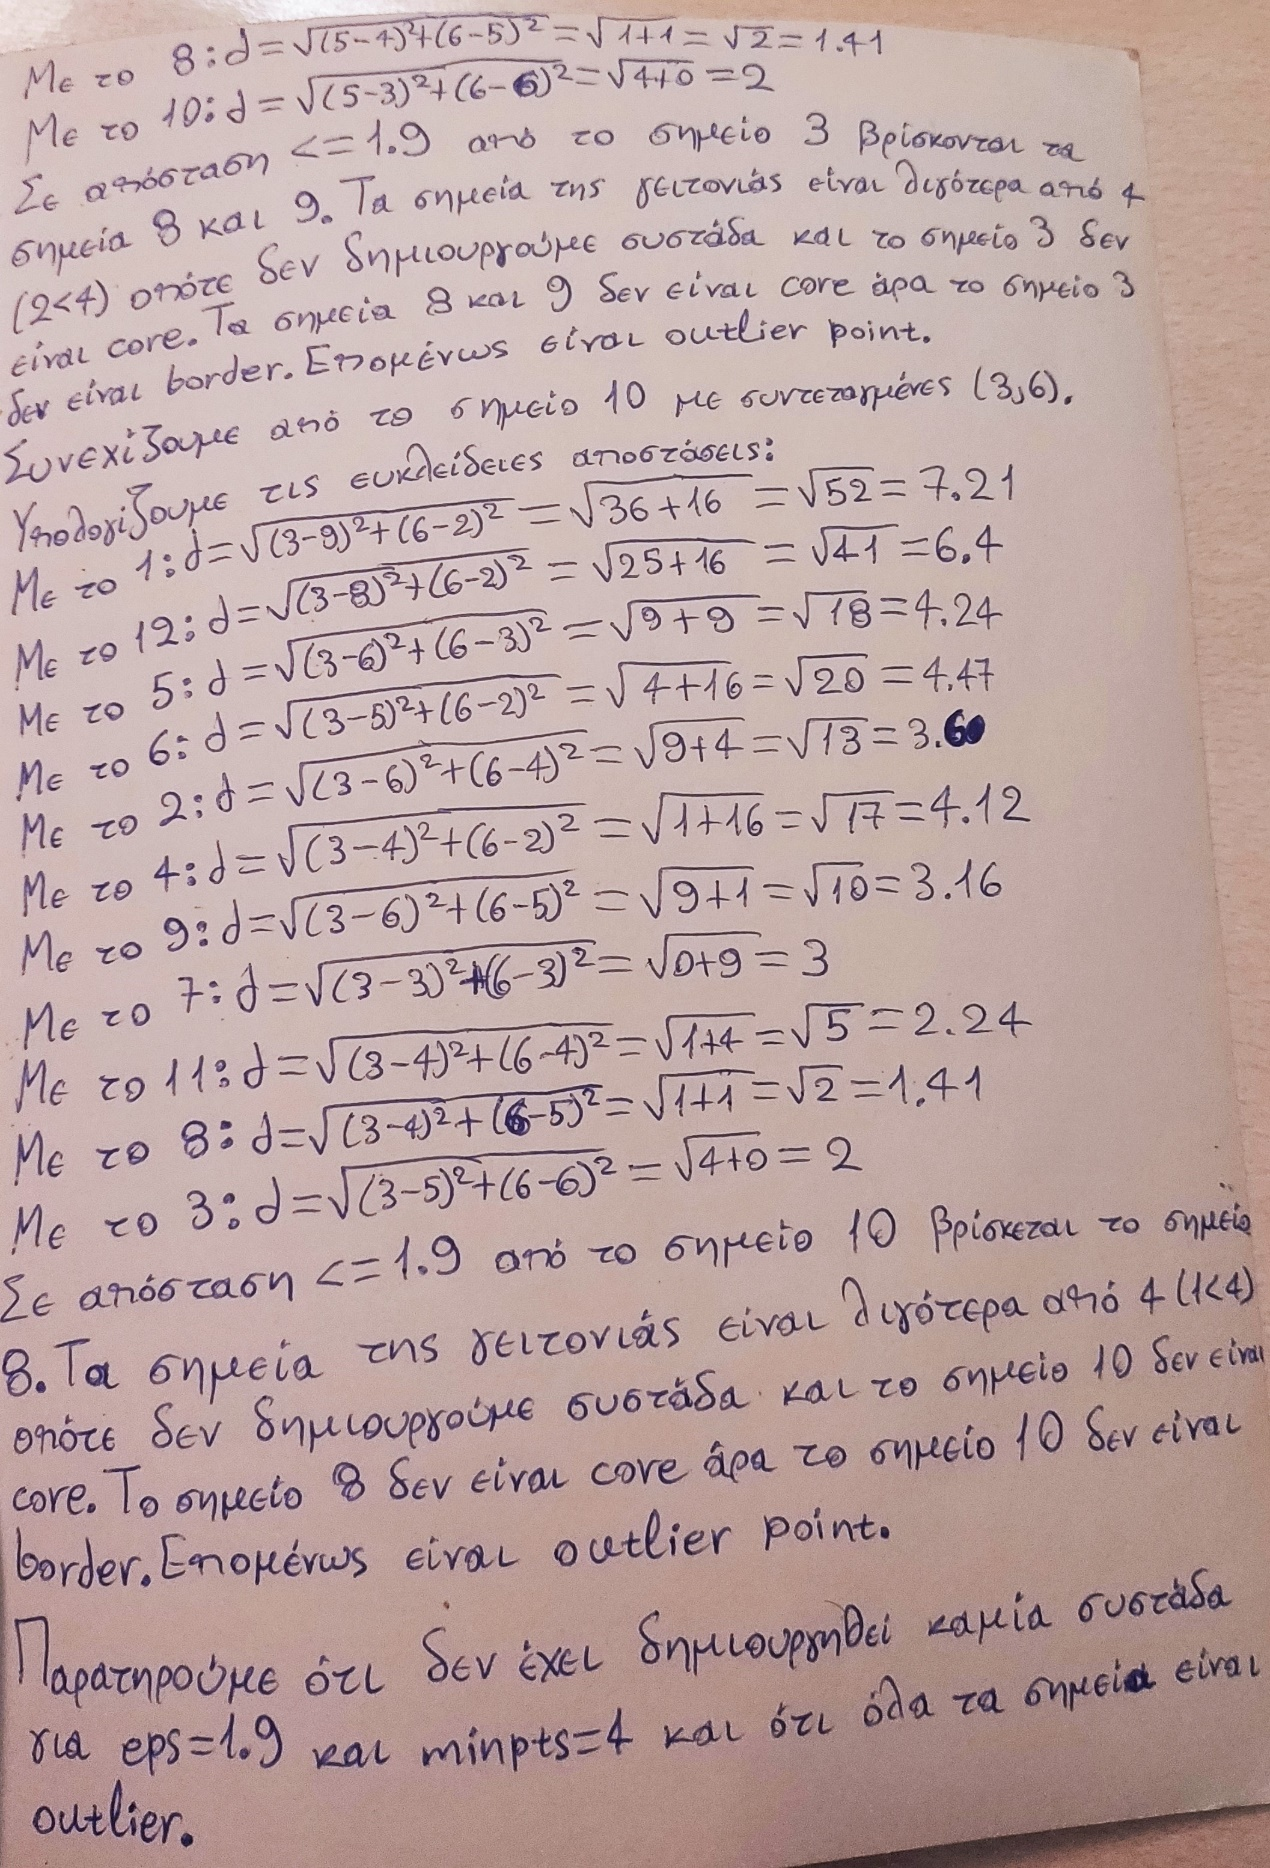 Με το 8: d=√(5-4)²+(6-5)²=√1+1=√2=1.41
Με το 10: d=√(5-3)²+(6-6)²=√4+0=2
Σε απόσταση <=1.9 από το σημείο 3 βρίσκονται τα
σημεία 8 και 9. Τα σημεία της γειτονιάς είναι λιγότερα από 4
(2<4) οπότε δεν δημιουργούμε συστάδα και το σημείο 3 δεν
είναι core. Τα σημεία 8 και 9 δεν είναι core άρα το σημείο 3
δεν είναι border. Επομένως είναι outlier point.
Συνεχίζουμε από το σημείο 10 με συντεταγμένες (3,6).
Υπολογίζουμε τις ευκλείδειες αποστάσεις:
Με το 1: d=√(3-9)²+(6-2)²=√36+16=√52=7.21
Με το 12: d=√(3-8)²+(6-2)²=√25+16=√41=6.4
Με το 5: d=√(3-6)²+(6-3)²=√9+9=√18=4.24
Με το 6: d=√(3-5)²+(6-2)²=√4+16=√20=4.47
Με το 2: d=√(3-6)²+(6-4)²=√9+4=√13=3.60
Με το 4: d=√(3-4)²+(6-2)²=√1+16=√17=4.12
Με το 9: d=√(3-6)²+(6-5)²=√9+1=√10=3.16
Με το 7: d=√(3-3)²+(6-3)²=√0+9=3
Με το 11: d=√(3-4)²+(6-4)²=√1+4=√5=2.24
Με το 8: d=√(3-4)²+(6-5)²=√1+1=√2=1.41
Με το 3: d=√(3-5)²+(6-6)²=√4+0=2
Σε απόσταση <=1.9 από το σημείο 10 βρίσκεται το σημείο
8. Τα σημεία της γειτονιάς είναι λιγότερα από 4 (1<4)
οπότε δεν δημιουργούμε συστάδα και το σημείο 10 δεν είναι
core. Το σημείο 8 δεν είναι core άρα το σημείο 10 δεν είναι
border. Επομένως είναι outlier point.
Παρατηρούμε ότι δεν έχει δημιουργηθεί καμία συστάδα
για eps=1.9 και minpts=4 και ότι όλα τα σημεία είναι
outlier.